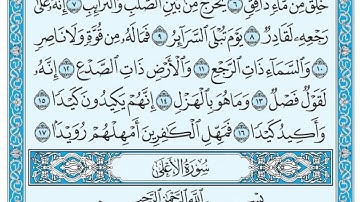 خُلِقَ مِن مَّآءٍ دَافِقٍ ٦ يَخْرُجُ مِنۢ بَيْنِ ٱلصُّلْبِ وَٱلتَّرَآئِبِ ٧ إِنَّهُۥ عَلَىٰ
رَجْعِهِۦ لَقَادِرٌ ٨ يَوْمَ تُبْلَى ٱلسَّرَآئِرُ ٩ فَمَا لَهُۥ مِن قُوَّةٍ وَلَا نَاصِرٍ
١٠ وَٱلسَّمَآءِ ذَاتِ ٱلرَّجْعِ ١١ وَٱلْأَرْضِ ذَاتِ ٱلصَّدْعِ ١٢ إِنَّهُۥ
لَقَوْلٌ فَصْلٌ ١٣ وَمَا هُوَ بِٱلْهَزْلِ ١٤ إِنَّهُمْ يَكِيدُونَ كَيْدًا ١٥
وَأَكِيدُ كَيْدًا ١٦ فَمَهِّلِ ٱلْكَٰفِرِينَ أَمْهِلْهُمْ رُوَيْدًۢا ١٧
سُورَةُ الأَعْلَىٰ
بِسْمِ ٱللَّهِ ٱلرَّحْمَٰنِ ٱلرَّحِيمِ